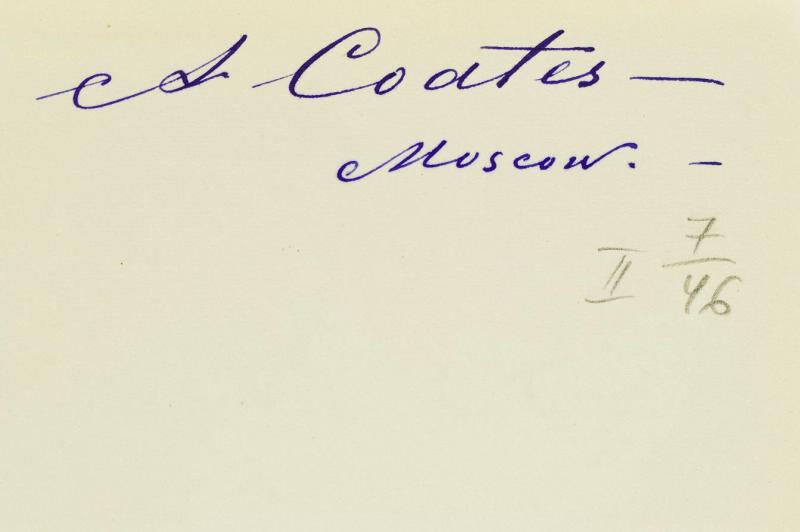 A Coates —
Moscow. —
II 7/46